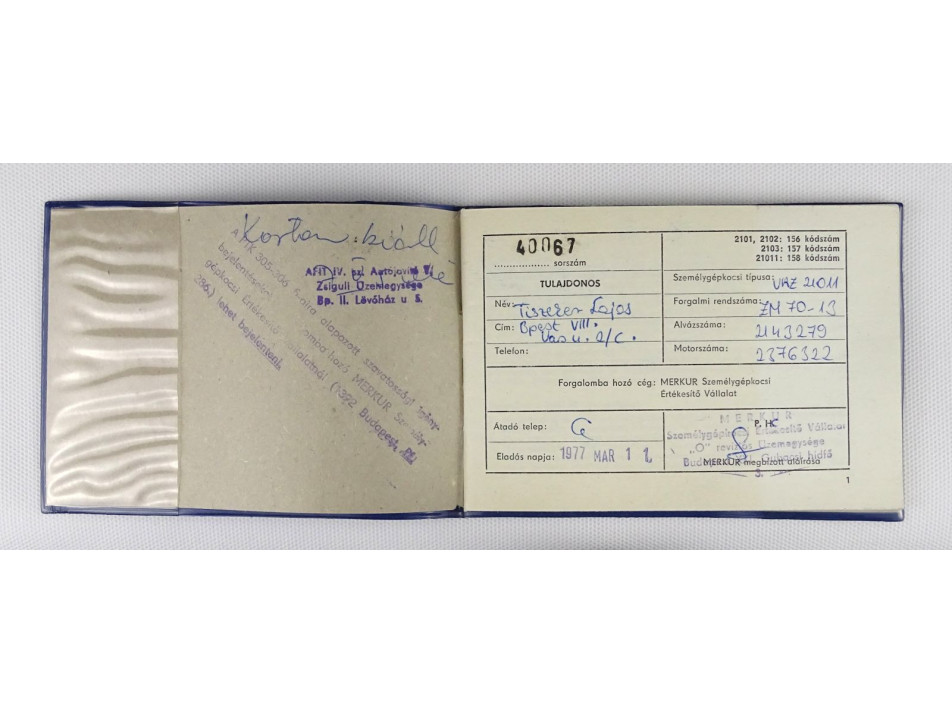 A PTK 305-306 §-aira alapozott szavatossági igény-
bejelentését
gépkocsi Értékesítő Vállalatnál (1392 Budapest, Pf.
286.) lehet bejelenteni.
AFIT IV. sz. Autójavító V.
Zsiguli Üzemegysége
Bp. II. Lövőház u 5.
40067
sorszám
2101, 2102: 156 kódszám
2103: 157 kódszám
21011: 158 kódszám
TULAJDONOS
Név: Lajos
Cím: Bpest VIII.
Vas u. 2/C.
Telefon:
Személygépkocsi típusa: VAZ 21011
Forgalmi rendszáma: ZM 70-13
Alvázszáma: 2143279
Motorszáma: 2376322
Forgalomba hozó cég: MERKUR Személygépkocsi
Értékesítő Vállalat
Átadó telep:
Eladás napja: 1977 MAR 11.
P. H.
MERKUR
Személygépkocsi Értékesítő Vállalat
„O" revíziós Üzemegysége
Budapest, Gubacsi hídfő
MERKUR megbízott aláírása
1